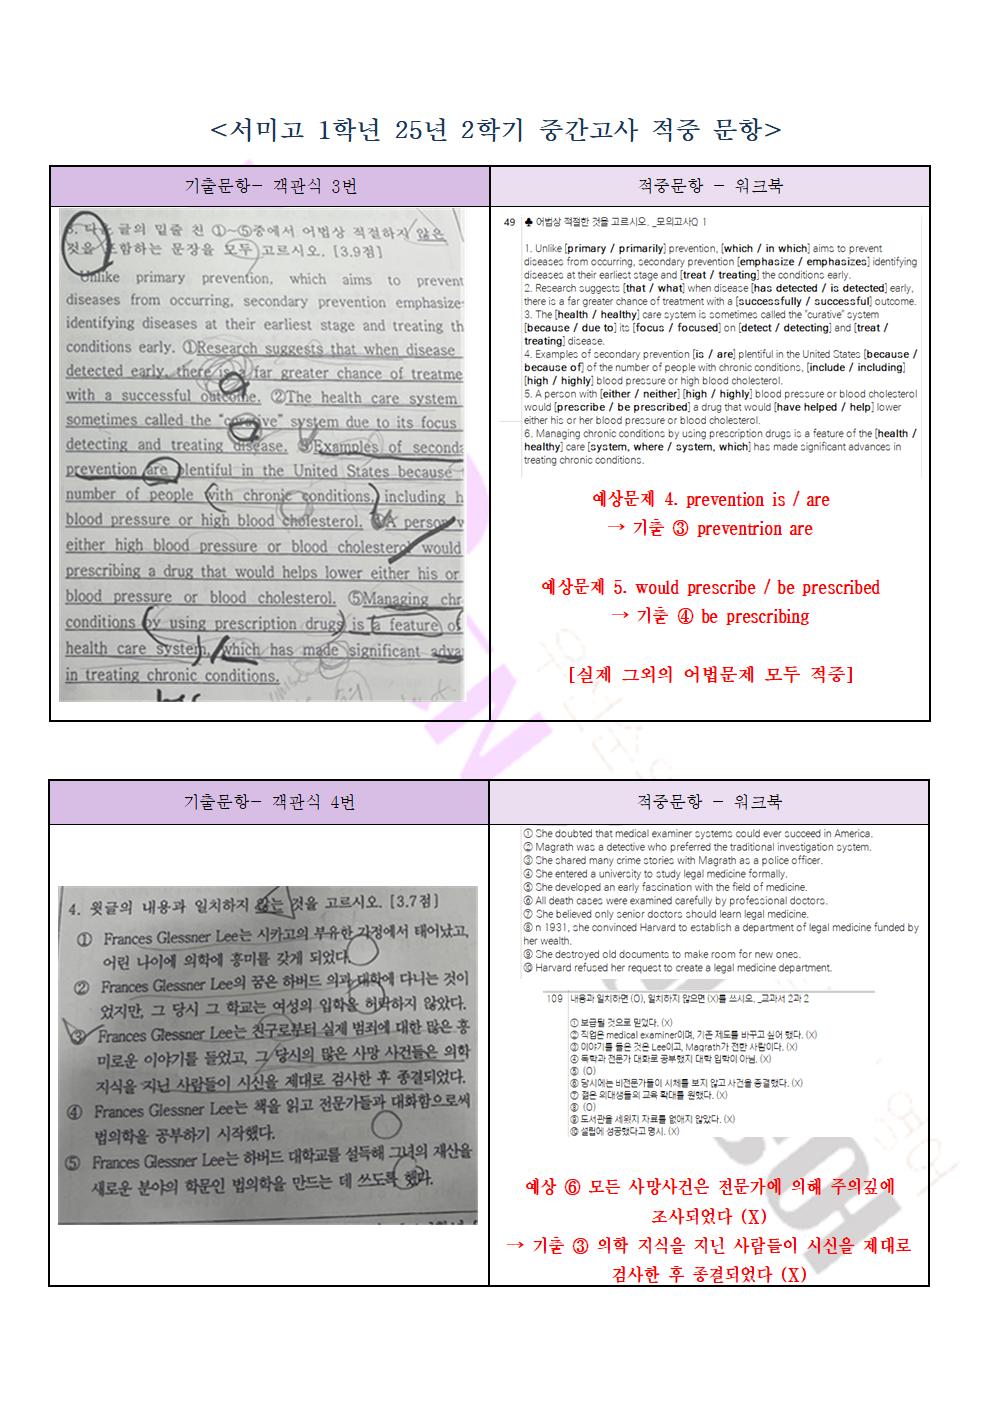 <서미고 1학년 25년 2학기 중간고사 적중 문항>
기출문항- 객관식 3번
적중문항 - 워크북
3. 다음 글의 밑줄 친 ①~⑤중에서 어법상 적절하지 않은
것을 포함하는 문장을 모두 고르시오. [3.9점]
Unlike primary prevention, which aims to prevent
diseases from occurring, secondary prevention emphasize
identifying diseases at their earliest stage and treating th
conditions early. ①Research suggests that when disease
detected early, there is a far greater chance of treatme
with a successful outcome. ②The health care system
sometimes called the "curative" system due to its focus
detecting and treating disease. ③Examples of seconda
prevention are plentiful in the United States because
number of people with chronic conditions, including h
blood pressure or high blood cholesterol. ④A person w
either high blood pressure or blood cholesterol would
prescribing a drug that would helps lower either his or
blood pressure or blood cholesterol. ⑤Managing chr
conditions by using prescription drugs is a feature of
health care system, which has made significant adva
in treating chronic conditions.
49 ♣ 어법상 적절한 것을 고르시오. _모의고사Q 1
1. Unlike [primary / primarily] prevention, [which / in which] aims to prevent
diseases from occurring, secondary prevention [emphasize / emphasizes] identifying
diseases at their earliest stage and [treat / treating] the conditions early.
2. Research suggests [that / what] when disease [has detected / is detected] early,
there is a far greater chance of treatment with a [successfully / successful] outcome.
3. The [health / healthy] care system is sometimes called the "curative" system
[because / due to] its [focus / focused] on [detect / detecting] and [treat /
treating] disease.
4. Examples of secondary prevention [is / are] plentiful in the United States [because /
because of] of the number of people with chronic conditions, [include / including]
[high / highly] blood pressure or high blood cholesterol.
5. A person with [either / neither] [high / highly] blood pressure or blood cholesterol
would [prescribe / be prescribed] a drug that would [have helped / help] lower
either his or her blood pressure or blood cholesterol.
6. Managing chronic conditions by using prescription drugs is a feature of the [health /
healthy] care [system, where / system, which] has made significant advances in
treating chronic conditions.
예상문제 4. prevention is / are
→ 기출 ③ preventrion are
예상문제 5. would prescribe / be prescribed
→ 기출 ④ be prescribing
[실제 그외의 어법문제 모두 적중]
기출문항- 객관식 4번
적중문항 - 워크북
4. 윗글의 내용과 일치하지 않는 것을 고르시오. [3.7점]
① Frances Glessner Lee는 시카고의 부유한 가정에서 태어났고,
어린 나이에 의학에 흥미를 갖게 되었다.
② Frances Glessner Lee의 꿈은 하버드 의과 대학에 다니는 것이
었지만, 그 당시 그 학교는 여성의 입학을 허락하지 않았다.
③ Frances Glessner Lee는 친구로부터 실제 범죄에 대한 많은 흥
미로운 이야기를 들었고, 그 당시의 많은 사망 사건들은 의학
지식을 지닌 사람들이 시신을 제대로 검사한 후 종결되었다.
④ Frances Glessner Lee는 책을 읽고 전문가들과 대화함으로써
법의학을 공부하기 시작했다.
⑤ Frances Glessner Lee는 하버드 대학교를 설득해 그녀의 재산을
새로운 분야의 학문인 법의학을 만드는 데 쓰도록 했다.
① She doubted that medical examiner systems could ever succeed in America.
② Magrath was a detective who preferred the traditional investigation system.
③ She shared many crime stories with Magrath as a police officer.
④ She entered a university to study legal medicine formally.
⑤ She developed an early fascination with the field of medicine.
⑥ All death cases were examined carefully by professional doctors.
⑦ She believed only senior doctors should learn legal medicine.
⑧ n 1931, she convinced Harvard to establish a department of legal medicine funded by
her wealth.
⑨ She destroyed old documents to make room for new ones.
⑩ Harvard refused her request to create a legal medicine department.
109 내용과 일치하면 (O), 일치하지 않으면 (X)를 쓰시오. _교과서 2과 2
① 보급될 것으로 믿었다. (X)
② 직업은 medical examiner이며, 기존 제도를 바꾸고 싶어 했다. (X)
③ 이야기를 들은 것은 Lee이고, Magrath가 전한 사람이다. (X)
④ 독학과 전문가 대화로 공부했지 대학 입학이 아님. (X)
⑤ (O)
⑥ 당시에는 비전문가들이 시체를 보지 않고 사건을 종결했다. (X)
⑦ 젊은 의대생들의 교육 확대를 원했다. (X)
⑧ (O)
⑨ 도서관을 세웠지 자료를 없애지 않았다. (X)
⑩ 설립에 성공했다고 명시. (X)
예상 ⑥ 모든 사망사건은 전문가에 의해 주의깊에
조사되었다 (X)
→ 기출 ③ 의학 지식을 지닌 사람들이 시신을 제대로
검사한 후 종결되었다 (X)